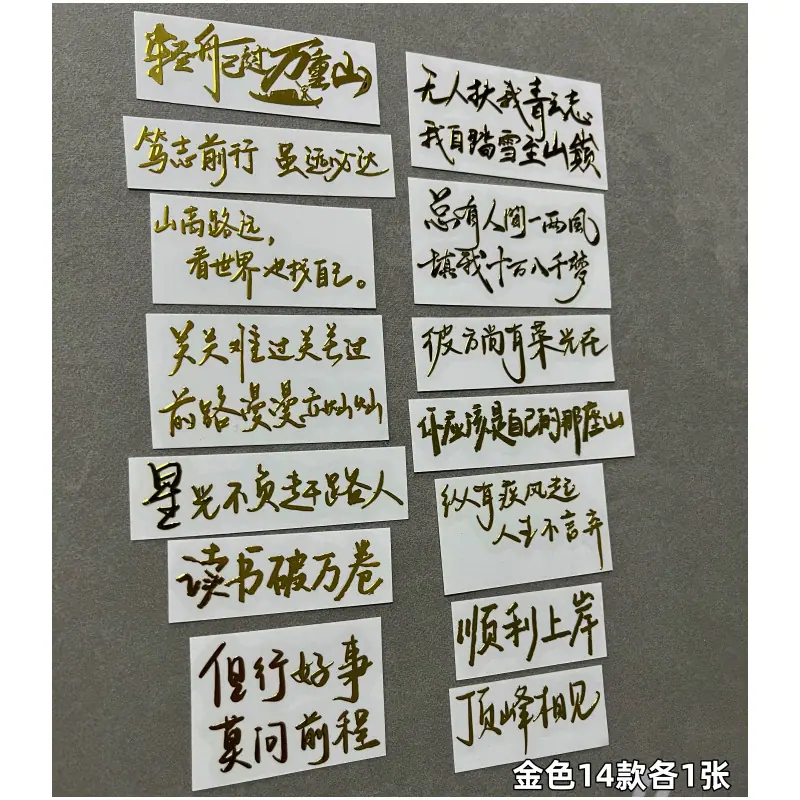 轻舟已过万重山
笃志前行 虽远必达
山高路远，
看世界也找自己。
关关难过关关过
前路漫漫亦灿灿
星光不负赶路人
读书破万卷
但行好事
莫问前程
无人扶我青云志
我自踏雪至山巅
总有人间一两风
填我十万八千梦
彼方尚有荣光在
你应该是自己的那座山
纵有疾风起
人生不言弃
顺利上岸
顶峰相见
金色14款各1张